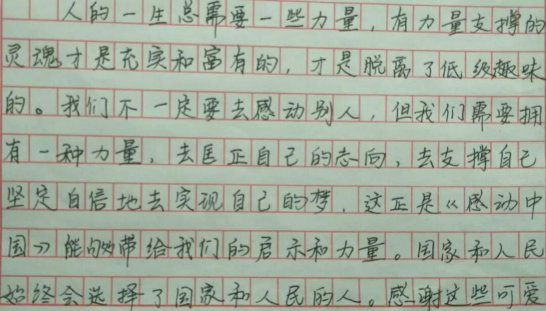 人的一生总需要一些力量，有力量支撑的
灵魂才是充实和富有的，才是脱离了低级趣味
的。我们不一定要去感动别人，但我们需要拥
有一种力量，去匡正自己的志向，去支撑自己
坚定自信地去实现自己的梦，这正是《感动中
国》能够带给我们的启示和力量。国家和人民
始终会选择了国家和人民的人。感谢这些可爱